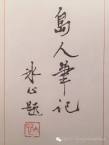 島人筆記
冰心題